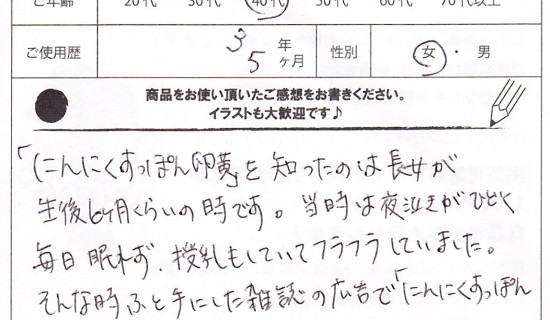 ご年齢 20代 30代 40代 50代 60代 70代以上
ご使用歴 3年 5ヶ月 性別 女・男
商品をお使い頂いたご感想をお書きください。
イラストも大歓迎です♪
「にんにくすっぽん卵黄」を知ったのは長女が
生後6ヶ月くらいの時です。当時は夜泣きがひどく
毎日眠れず、授乳もしていてフラフラしていました。
そんな時ふと手にした雑誌の広告で「にんにくすっぽん